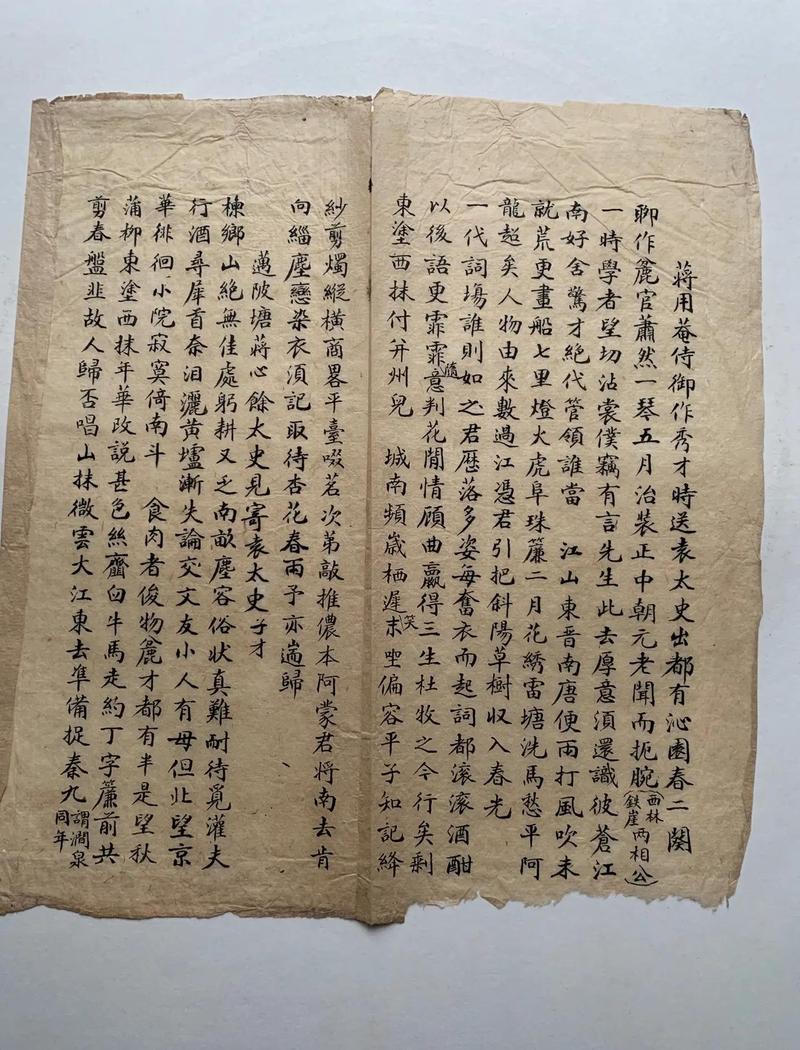 蔣用菴侍御作秀才時送袁太史出都有沁園春二闋
聊作麄官蕭然一琴五月治裝正中朝元老聞而扼腕(西林鉄崖兩相公)
一時學者望切沾裳僕竊有言先生此去厚意須還識彼蒼江
南好舍驚才絕代管領誰當　江山東晉南唐便雨打風吹未
就荒更畫船七里燈火虎阜珠簾二月花綉雷塘洗馬愁平阿
龍超矣人物由來數過江憑君引把斜陽草樹収入春光
一代詞塲誰則如之君歷落多姿每奮衣而起詞都滚滚酒酣
以後語更霏霏隨意判花閒情顧曲贏得三生杜牧之今行矣剩
東塗西抹付并州兒　城南頻歲栖遲笑末坐偏容平子知記絳
紗剪燭縱橫商畧平臺啜茗次弟敲推儂本阿蒙君將南去肯
向緇塵戀染衣須記取待杏花春雨予亦遄歸
邁陂塘蔣心餘太史見寄袁太史子才
棟鄉山絕無佳處躬耕又乏南畝塵容俗狀真難耐待覓灌夫
行酒尋犀首奈泪灑黃壚漸失論交文友小人有母但北望京
華徘徊小院寂寞倚南斗　食肉者俊物麄才都有半是望秋
蒲柳東塗西抹年華改說甚色絲虀臼牛馬走約丁字簾前共
剪春盤韭故人歸否唱山抹微雲大江東去準備捉秦九謂澗泉同年